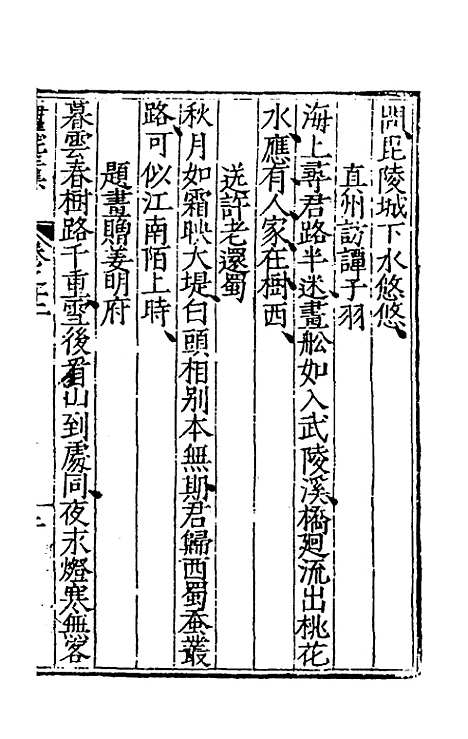 問毘陵城下水悠悠
直州訪譚子羽
海上尋君路半迷畫舩如入武陵溪橋廻流出桃花
水應有人家在樹西
送許老還蜀
秋月如霜映大堤白頭相别本無期君歸西蜀蚕叢
路可似江南陌上時
題畫贈姜明府
暮雲春樹路千重雪後看山到處同夜永燈寒無客